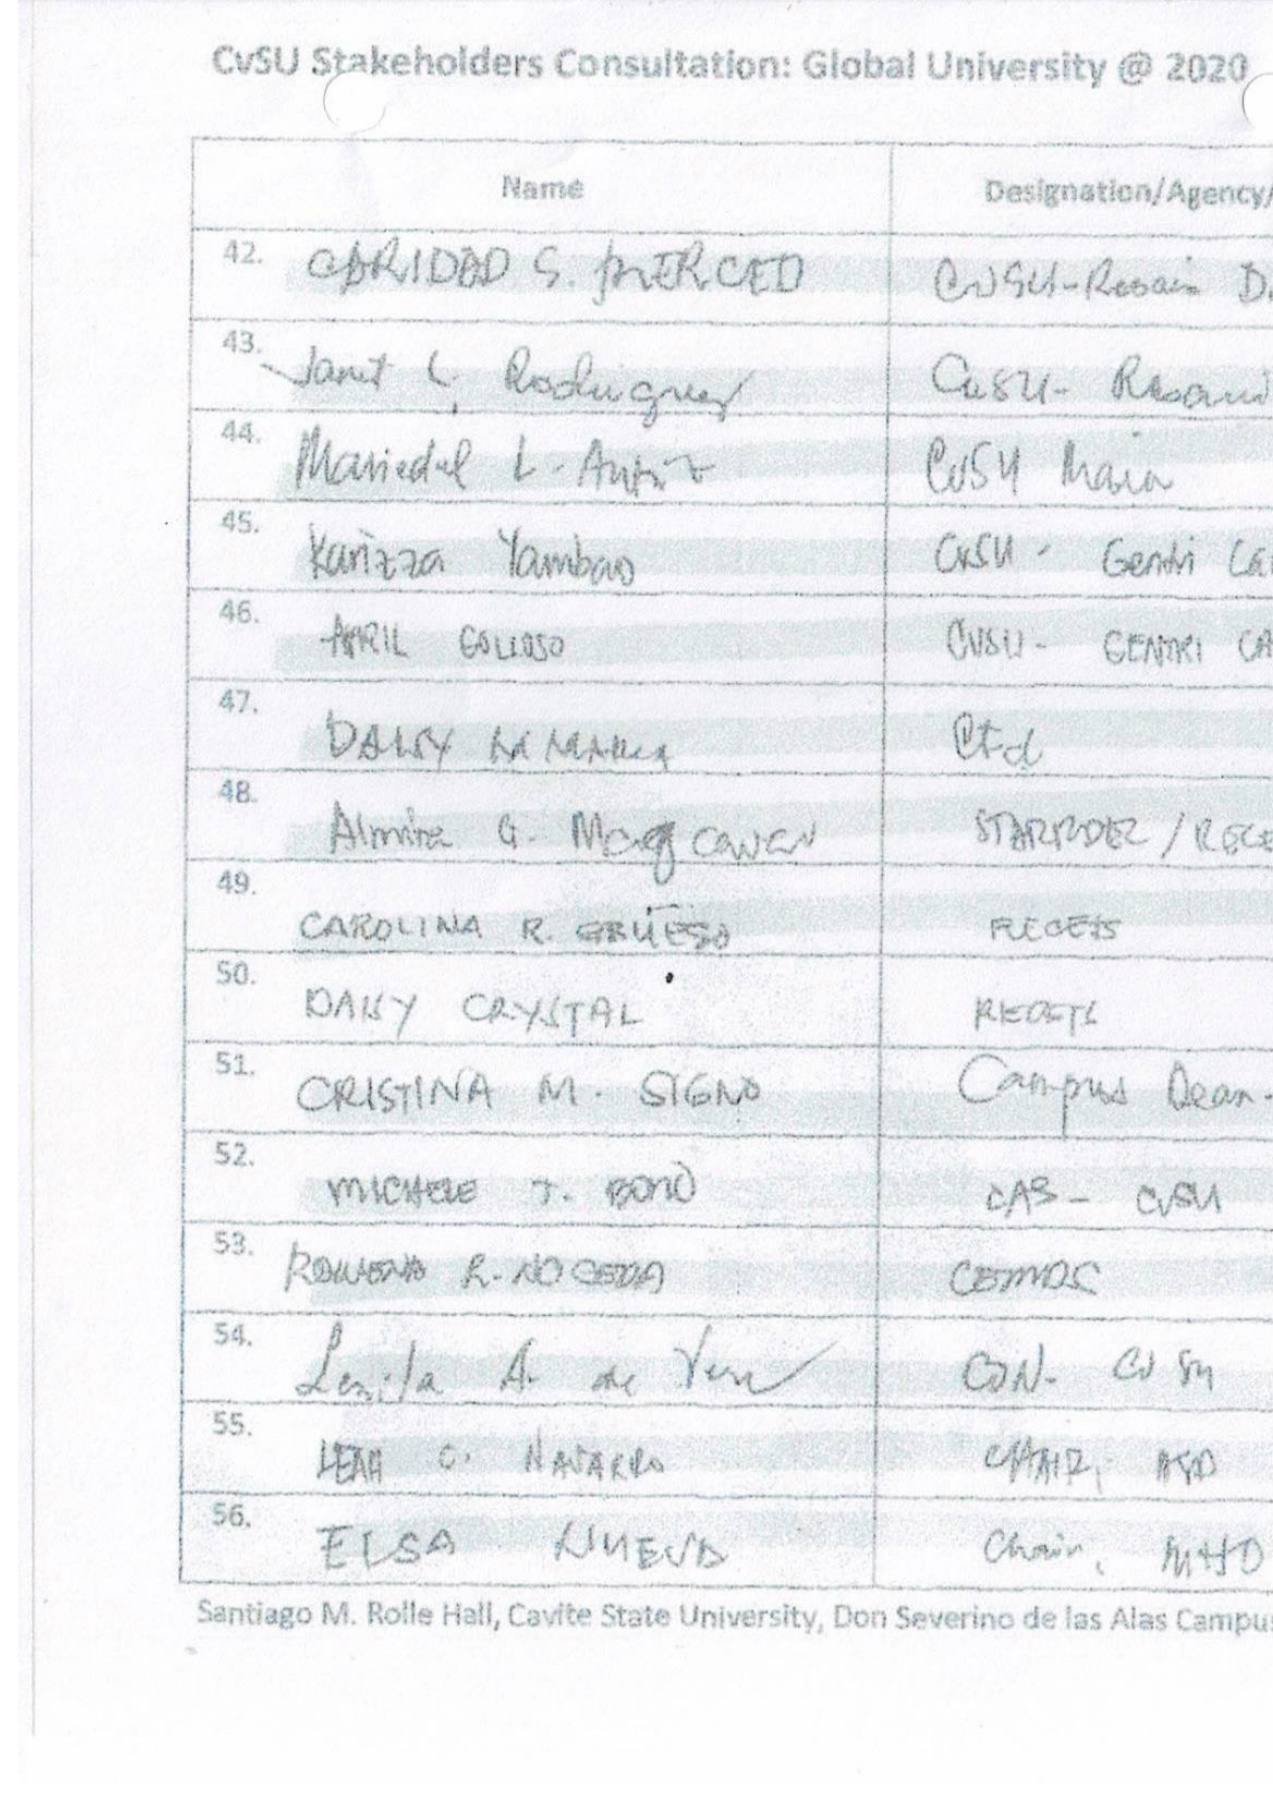 CvSU Stakeholders Consultation: Global University @ 2020
Name Designation/Agency/
42. CARIDAD S. MERCED CvSU-Rosario D.
43. Janet L. Rodriguez CvSU- Rosari
44. Mariedel L. CvSU Main
45. Karizza Yambao CvSU - Gentri Ca
46. APRIL GOLLOSO CVSU- GENTRI CA
47. DAISY
48. Almira G. /RECE
49. CAROLINA R. RECETS
50. DAISY CRYSTAL RECETS
51. CRISTINA M. SIGNO Campus Dean-
52. MICHELE T. BONO CAS - CvSU
53. ROWENA R. NOCEDA CEMDS
54. A. de Vera CON- CvSU
55. LEAH C. NAVARRO CHAIR,
56. ELSA NUEVO Chair, MHD
Santiago M. Rolle Hall, Cavite State University, Don Severino de las Alas Campus